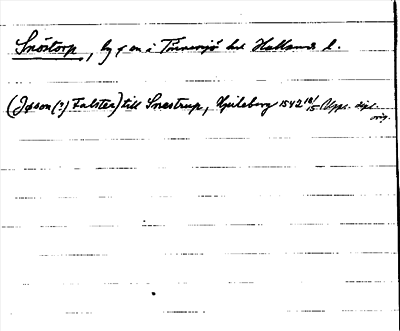 Snöstorp, by o en i Tönnersjö hd Hallands l.
(Jøson(?) Falster) till Snestrup, Hjuleberg 1542 18/15 Uppl. dipl. orig.